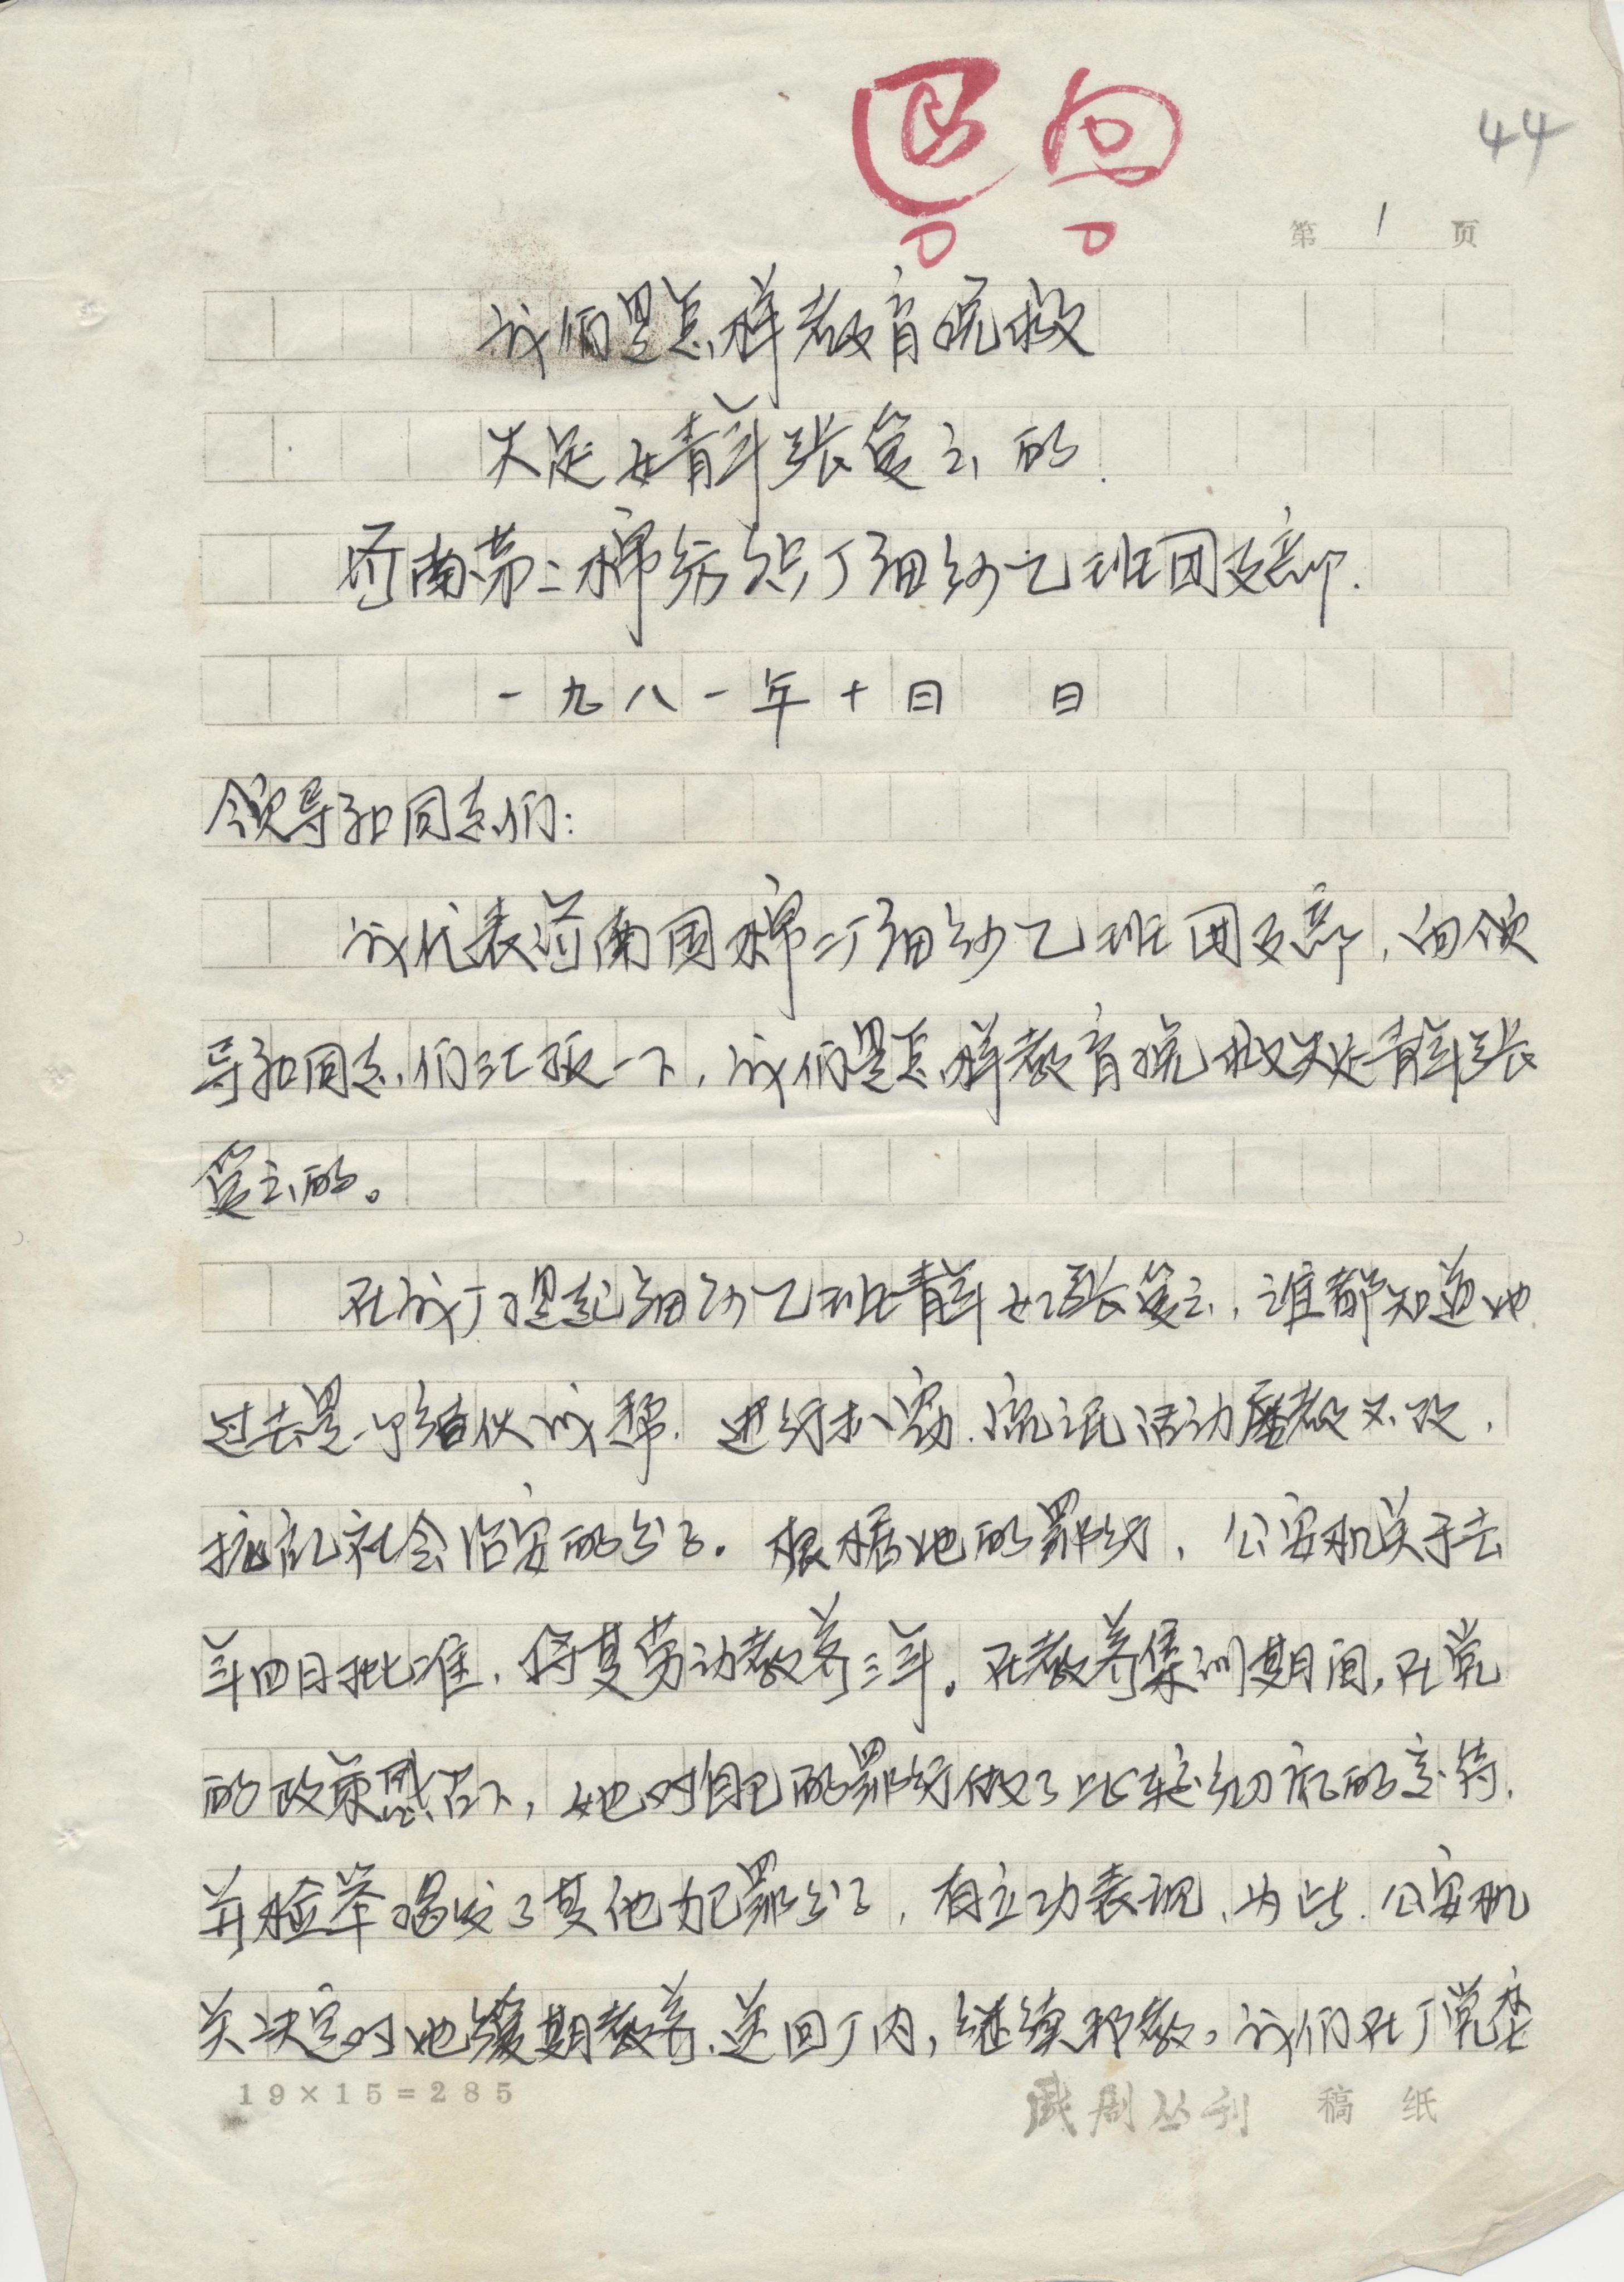 44
第 1 页
我们是怎样教育挽救
失足女青年张 云的
济南第二棉纺织厂细纱乙班团支部.
一九八一年十月 日
领导和同志们：
我代表济南国棉二厂细纱乙班团支部，向领
导和同志们汇报一下，我们是怎样教育挽救失足青年张
 云的。
在我厂提起细纱乙班青年女工张 云，谁都知道她
过去是一个结伙成帮，进行扒窃、流氓活动屡教不改，
扰乱社会治安的分子。根据她的罪行，公安机关于去
年四月批准，将其劳动教养三年。在教养集训期间，在党
的政策感召下，她对自己的罪行做了比较彻底的交待，
并检举揭发了其他犯罪分子，有立功表现，为此，公安机
关决定对她缓期教养，送回厂内，继续帮教。我们在厂党委
19×15=285
戏剧丛刊 稿纸